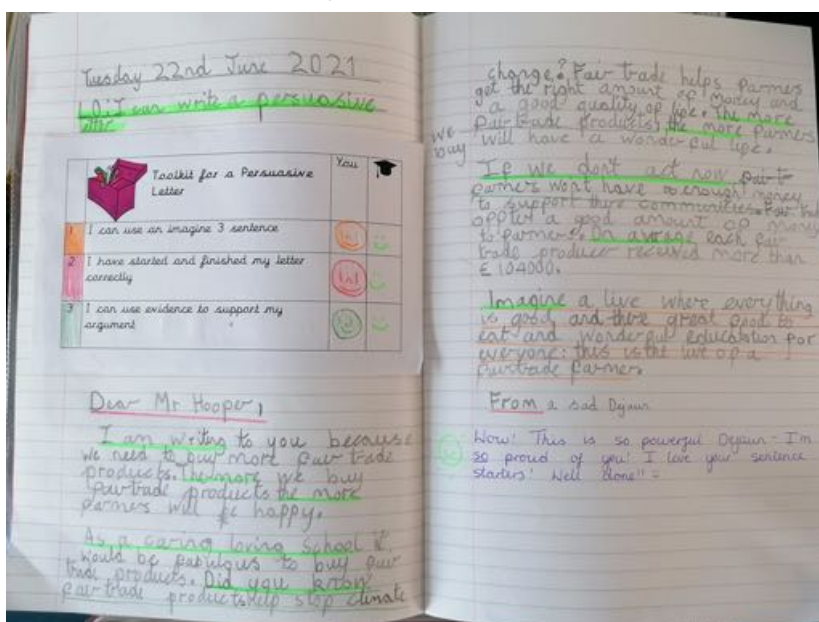 Tuesday 22nd June 2021
LO: I can write a persuasive
letter
Toolkit for a Persuasive
Letter
You
1 I can use an imagine 3 sentence
2 I have started and finished my letter
correctly
3 I can use evidence to support my
argument
Dear Mr Hooper,
I am writing to you because
we need to buy more fair trade
products. The more we buy
fairtrade products the more
farmers will be happy.
As a caring loving school it
would be fabulous to buy fair
trade products. Did you know
fair trade products help stop climate
change? Fair trade helps farmers
get the right amount of money and
a good quality of life. The more
we buy
fairtrade products, the more farmers
will have a wonderful life.
If we don't act now
farmers wont have enough money
to support there communities. Fair trade
a good amount of money
to farmers. On average each fair
trade producer received more than
£104000.
Imagine a live where everything
is good, and there great food to
eat and wonderful education for
everyone: this is the live of a
fairtrade farmer.
From a sad Dejaun
Wow! This is so powerful - I'm
so proud of you! I love your sentence
starters! Well done!! =